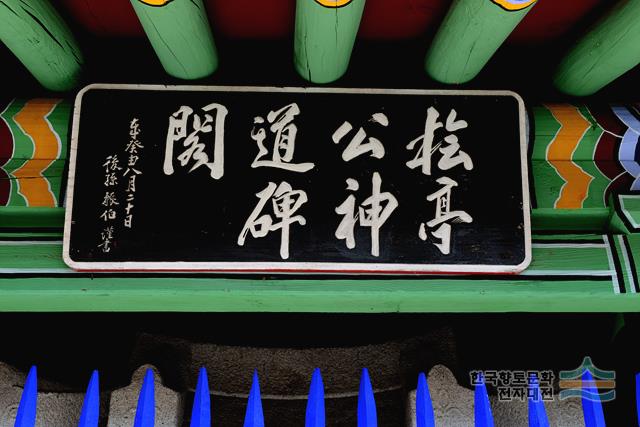 桧亭
公神
道碑
閣
歲癸丑八月二十日
後孫 振伯 謹書
한국향토문화
전자대전